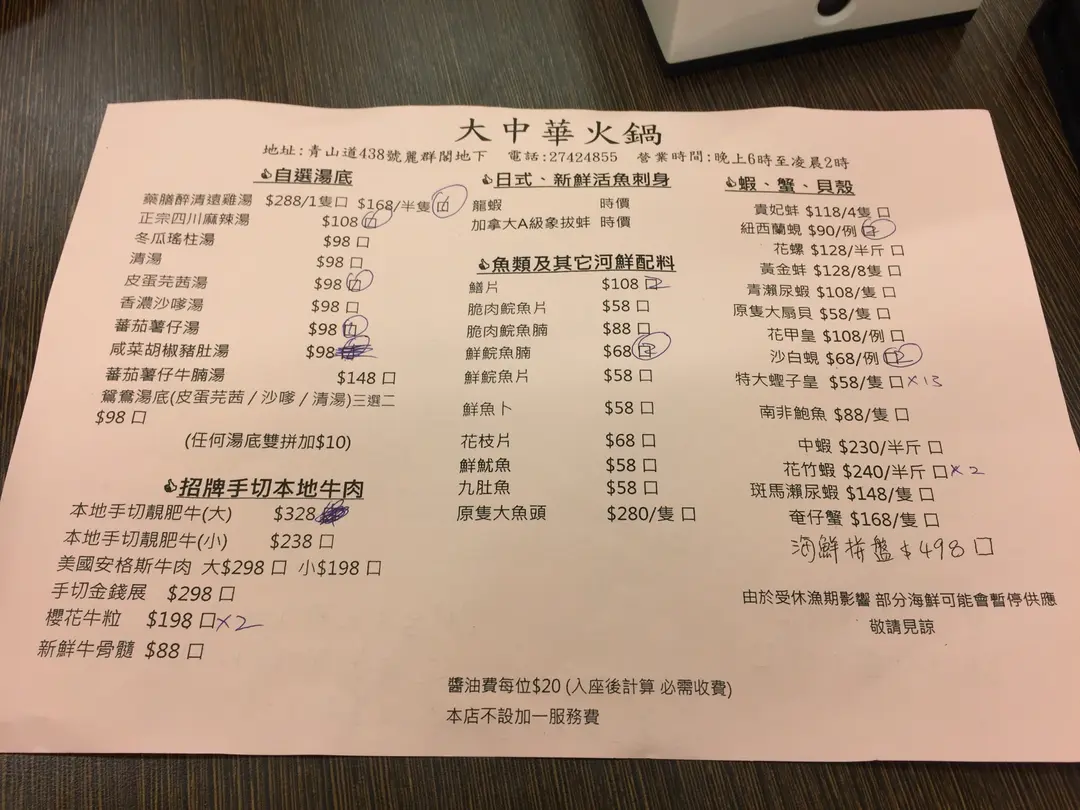 大中華火鍋
地址:青山道438號麗群閣地下 電話:27424855 營業時間:晚上6時至凌晨2時
自選湯底
藥膳醉清遠雞湯 $288/1隻口 $168/半隻口
正宗四川麻辣湯 $108口
冬瓜瑤柱湯 $98 口
清湯 $98 口
皮蛋芫茜湯 $98口
香濃沙嗲湯 $98 口
蕃茄薯仔湯 $98口
咸菜胡椒豬肚湯 $98
蕃茄薯仔牛腩湯 $148 口
鴛鴦湯底(皮蛋芫茜/沙嗲/清湯)三選二
$98 口
(任何湯底雙拼加$10)
招牌手切本地牛肉
本地手切靚肥牛(大) $328
本地手切靚肥牛(小) $238 口
美國安格斯牛肉 大$298 口 小$198 口
手切金錢展 $298 口
櫻花牛粒 $198 口x2
新鮮牛骨髓 $88 口
日式、新鮮活魚刺身
龍蝦 時價
加拿大A級象拔蚌 時價
魚類及其它河鮮配料
鱔片 $108 口2
脆肉鯇魚片 $58 口
脆肉鯇魚腩 $88 口
鮮鯇魚腩 $68口2
鮮鯇魚片 $58 口
鮮魚卜 $58 口
花枝片 $68 口
鮮魷魚 $58 口
九肚魚 $58 口
原隻大魚頭 $280/隻 口
蝦、蟹、貝殼
貴妃蚌 $118/4隻 口
紐西蘭蜆 $90/例 口2
花螺 $128/半斤 口
黃金蚌 $128/8隻 口
青瀨尿蝦 $108/隻 口
原隻大扇貝 $58/隻 口
花甲皇 $108/例 口
沙白蜆 $68/例 口2
特大蟶子皇 $58/隻 口x13
南非鮑魚 $88/隻 口
中蝦 $230/半斤 口
花竹蝦 $240/半斤 口x2
斑馬瀨尿蝦 $148/隻 口
奄仔蟹 $168/隻 口
海鮮拼盤 $498 口
由於受休漁期影響 部分海鮮可能會暫停供應
敬請見諒
醬油費每位$20 (入座後計算 必需收費)
本店不設加一服務費